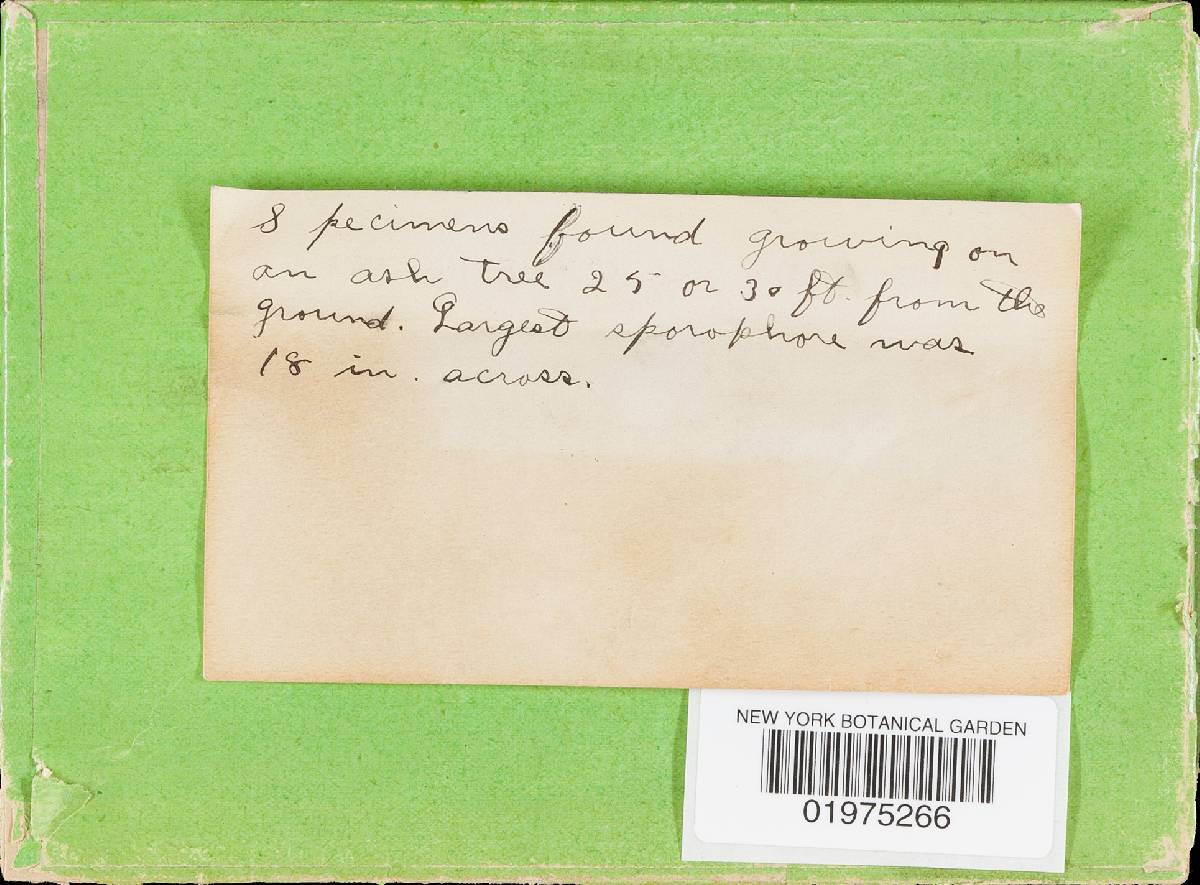 Specimens found growing on
an ash tree 25 or 30 ft. from the
ground. Largest sporophore was
18 in. across.
NEW YORK BOTANICAL GARDEN
01975266